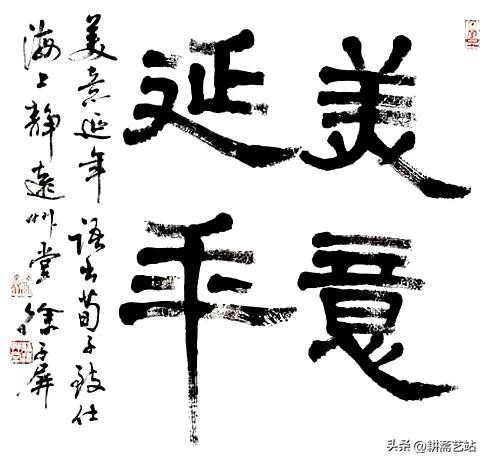 美意
延年
美意延年 語出荀子致仕
海上靜遠艸堂 徐子屏
头条 @耕斋艺站